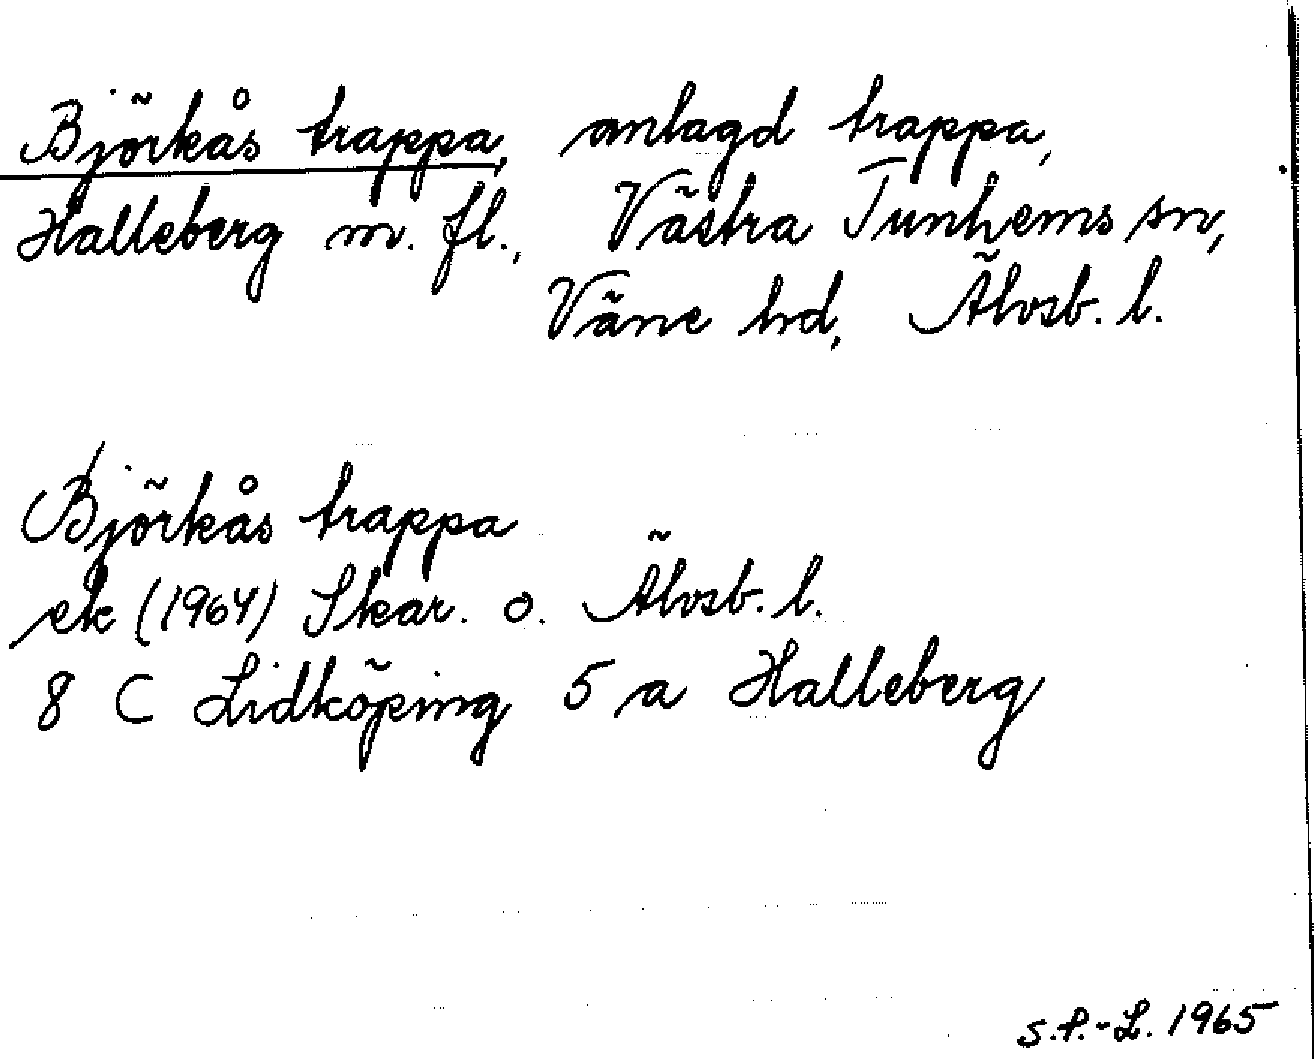 Björkås trappa, anlagd trappa,
Halleberg m. fl., Västra Tunhems sn,
Väne hd, Älvsb. l.
Björkås trappa
ek (1964) Skar. o. Älvsb. l.
8 C Lidköping 5 a Halleberg
S.P.-L. 1965